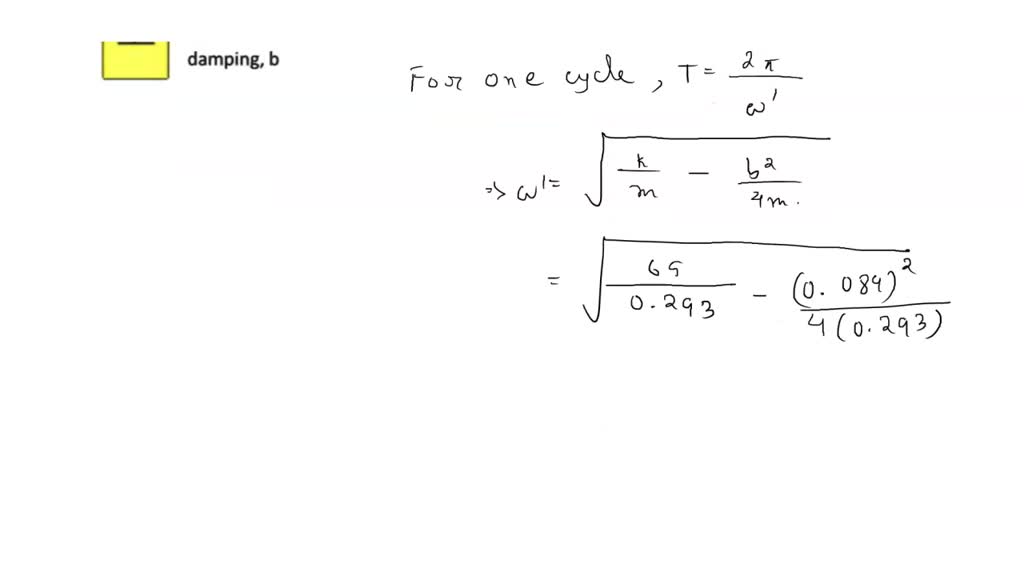 damping, b
For one cycle, T = 2π / ω'
=> ω' = √(k/m - b²/4m.)
= √(69/0.293 - (0.089)²/4(0.293))